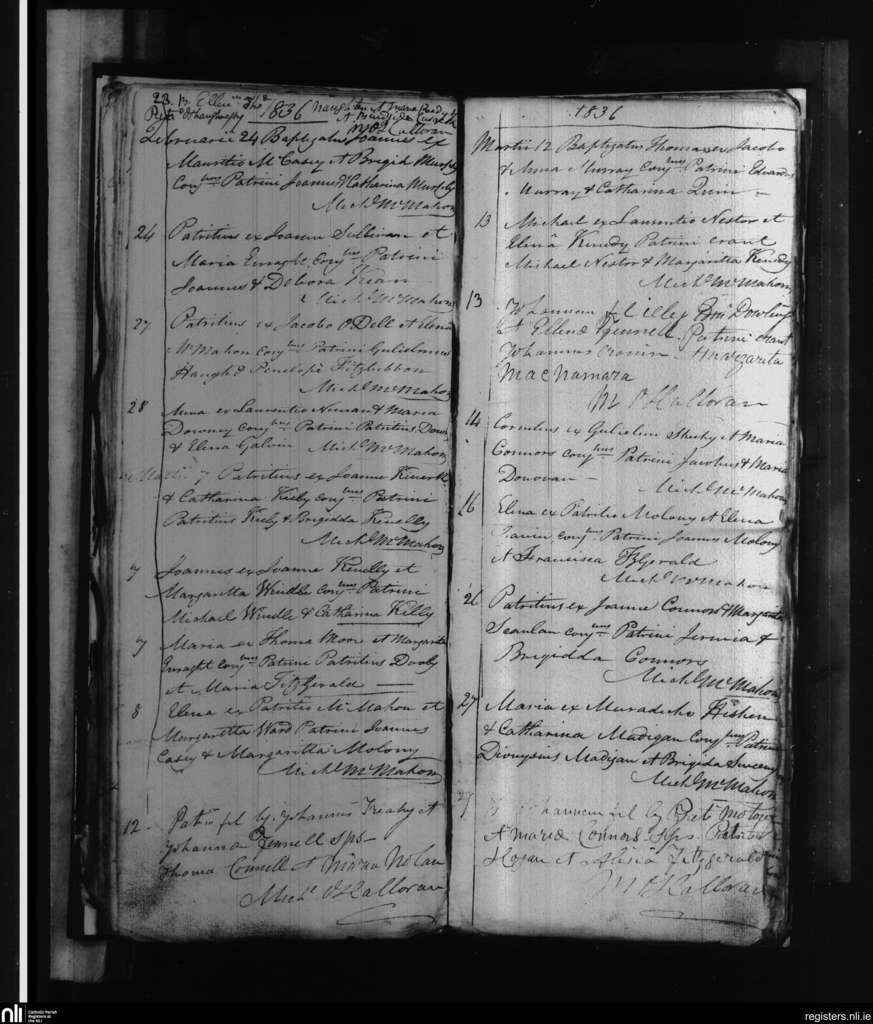 23. B. Ellen
1836
O'Shaughnessy
M O'Halloran
Februarii 24 Baptizatus Joannes ex
Mauritio McCasey et Brigid Murphy
Conjbus Patrini Joannes & Catharina Murphy
Michl McMahon
24 Patritius ex Joanne Sullivan et
Maria Enraght Conjbus Patrini
Joannes & Debora Kean
Michl McMahon
27 Patritius ex Jacobo O'Dell et Elena
McMahon Conjbus Patrini Gulielmus
Haugh & Penelope Fitzgibbon
Michl McMahon
28 Anna ex Laurentio Noonan & Maria
Downey Conjbus Patrini Patritius
& Elena Galvin Michl McMahon
Martii 7 Patritius ex Joanne
& Catharina Kiely Conjbus Patrini
Patritius Kiely & Brigidda Kenelly
Michl McMahon
7 Joannes ex Joanne Kenelly et
Margaritta Windle Conjbus Patrini
Michael Windle & Catharina Kelly
7 Maria ex Thoma Moor et Margarita
Enraght Conjbus Patrini Patritius Dooly
et Maria Fitzgerald
8 Elena ex Patritio McMahon et
Margaritta Ward Patrini Joannes
Casey & Margaritta Molony
Michl McMahon
12 fil by Johannis Treahy et
Johanna Fennell Sps
Thoma Connell et Maria Nolan
Michl O'Halloran
1836
Martii 12 Baptizatus Thomas ex Jacobo
& Anna Murray Conjbus Patrini Edvardus
Murray & Catharina Quin
13 Michael ex Laurentio Nestor et
Elena Kennedy Patrini erant
Michael Nestor & Margaritta Kennedy
Michl McMahon
13 Johannem fil illeg Dowling
et Ellenæ Fennell Patrini erant
Johannes Cronin Margarita
MacNamara
M O'Halloran
14 Cornelius ex Gulielmo Sheehy et Maria
Connors Conjbus Patrini Jacobus & Maria
Donovan
Michl McMahon
16 Elena ex Patritio Molony et Elena
Conjbus Patrini Joannes Molony
et Francisca FzGerald
Michl McMahon
26 Patritius ex Joanne Connors & Margarita
Scanlan Conjbus Patrini Jeremia &
Brigidda Connors
Michl McMahon
27 Maria ex Muradcho
& Catharina Madigan Conjbus Patrini
Dionysius Madigan et Brigida Sweeny
Michl McMahon
27 Johannem fil by
et Maria Connors Sps
Hogan et Alisia Fitzgerald
M O'Halloran
nli
Catholic Parish
Registers at
the NLI
registers.nli.ie